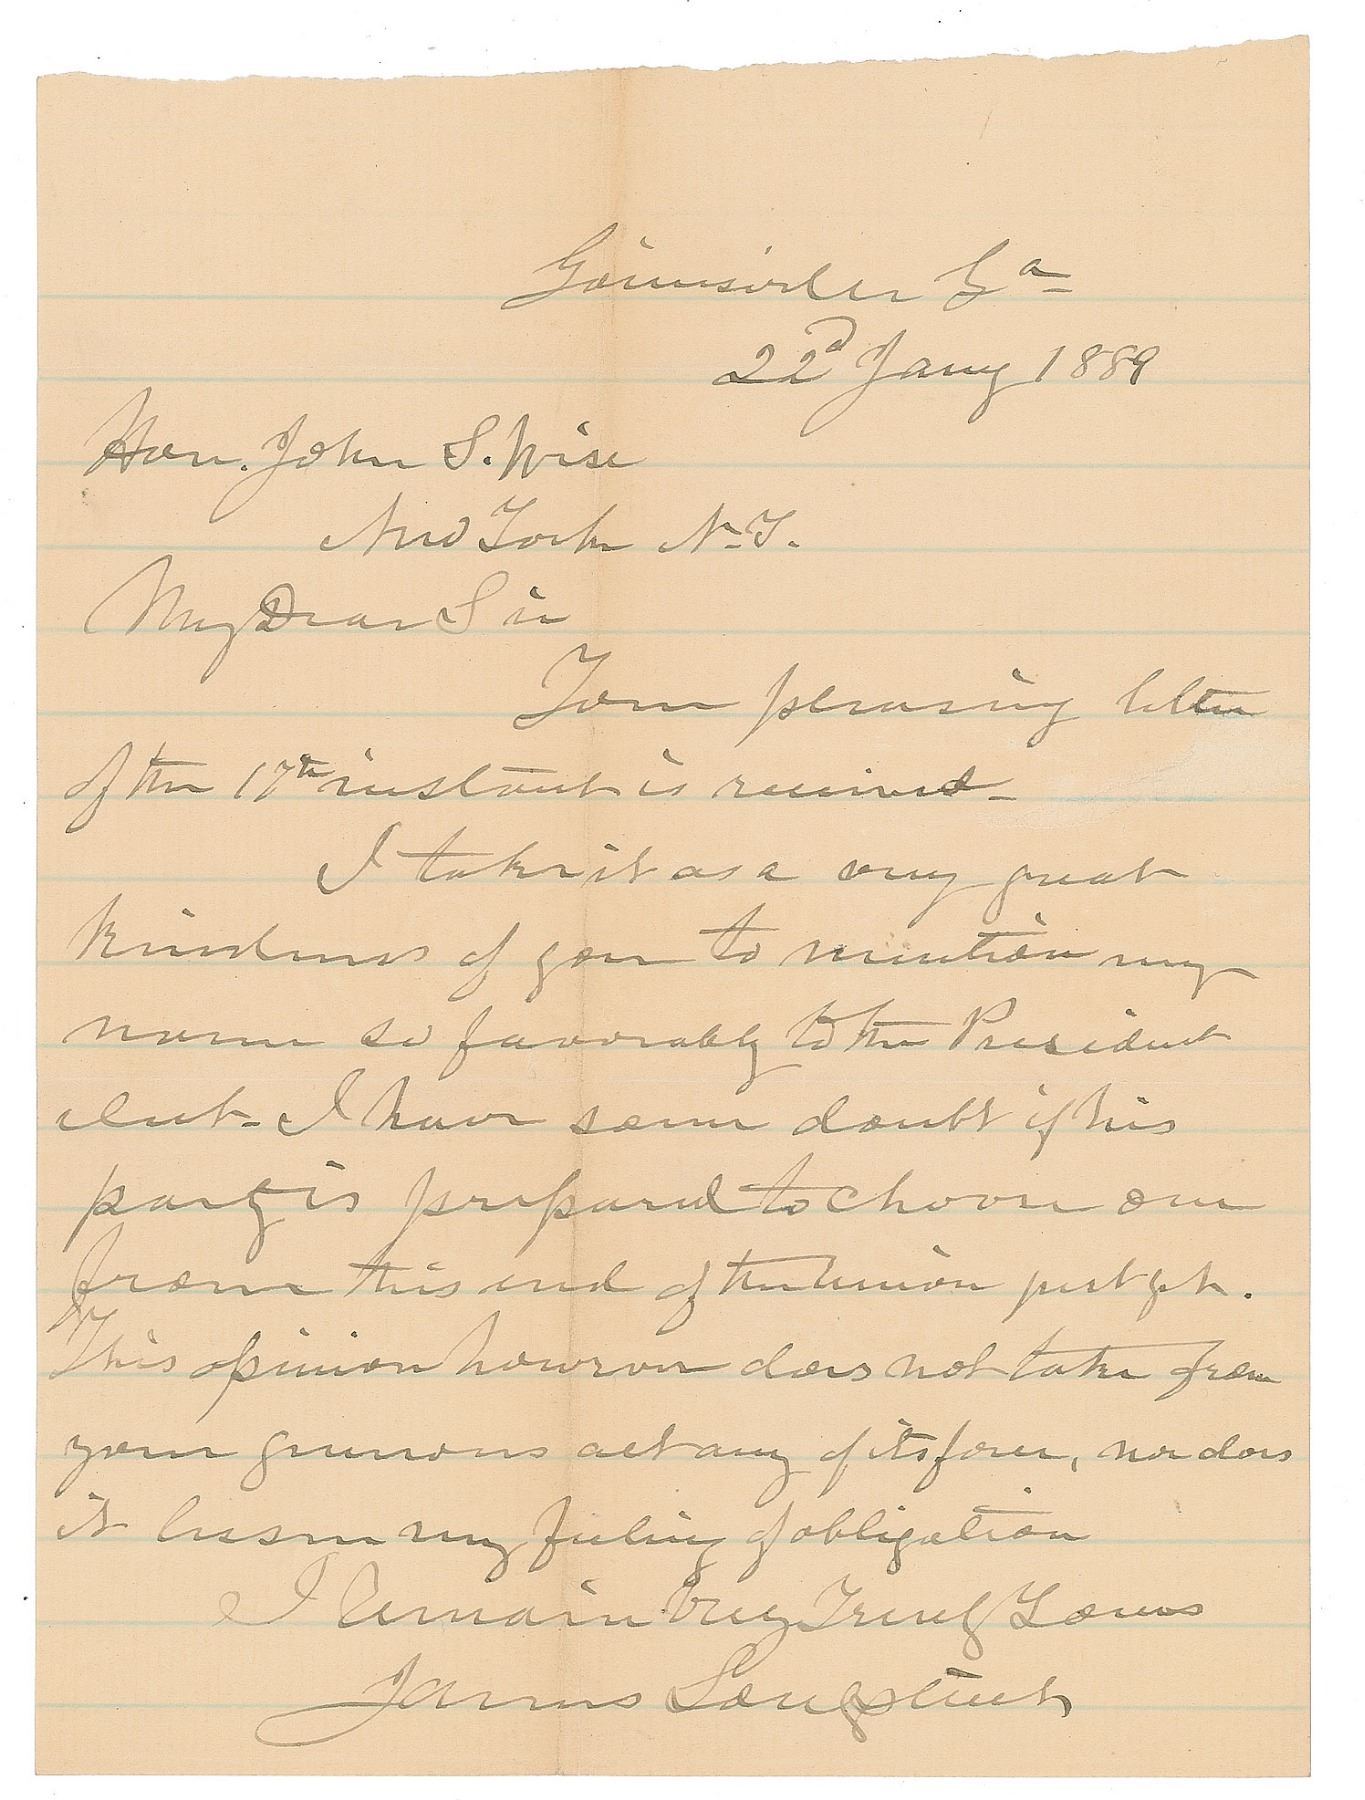 Gainesville Ga
22d Jany 1889
Hon. John S. Wise
New York N.Y.
My Dear Sir
Your pleasing letter
of the 17th instant is received_
I take it as a very great
kindness of you to mention my
name so favorably to the President
elect- I have some doubt if his
party is prepared to choose one
from this end of the Union just yet.
This opinion however does not take from
your generous act any of its force, nor does
it lessen my feeling of obligation
I Remain Very Truly Yours
James Longstreet